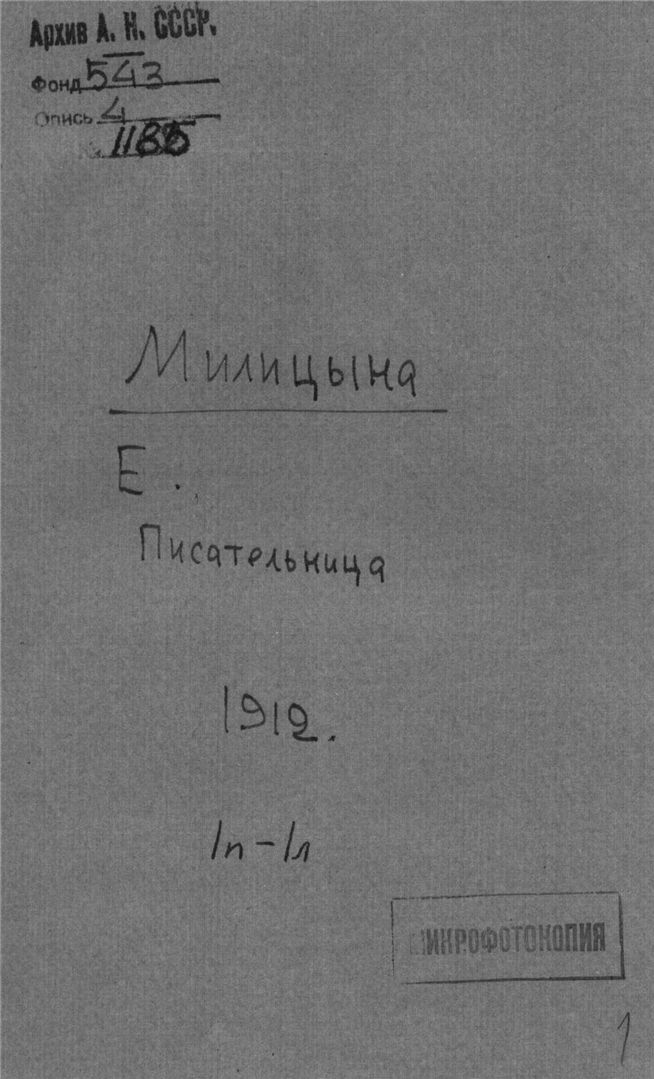 Архив А. Н. СССР.
Фонд 543
Опись 4
№
Милицына
Е.
Писательница
1912.
1п-1л
МИКРОФОТОКОПИЯ
1